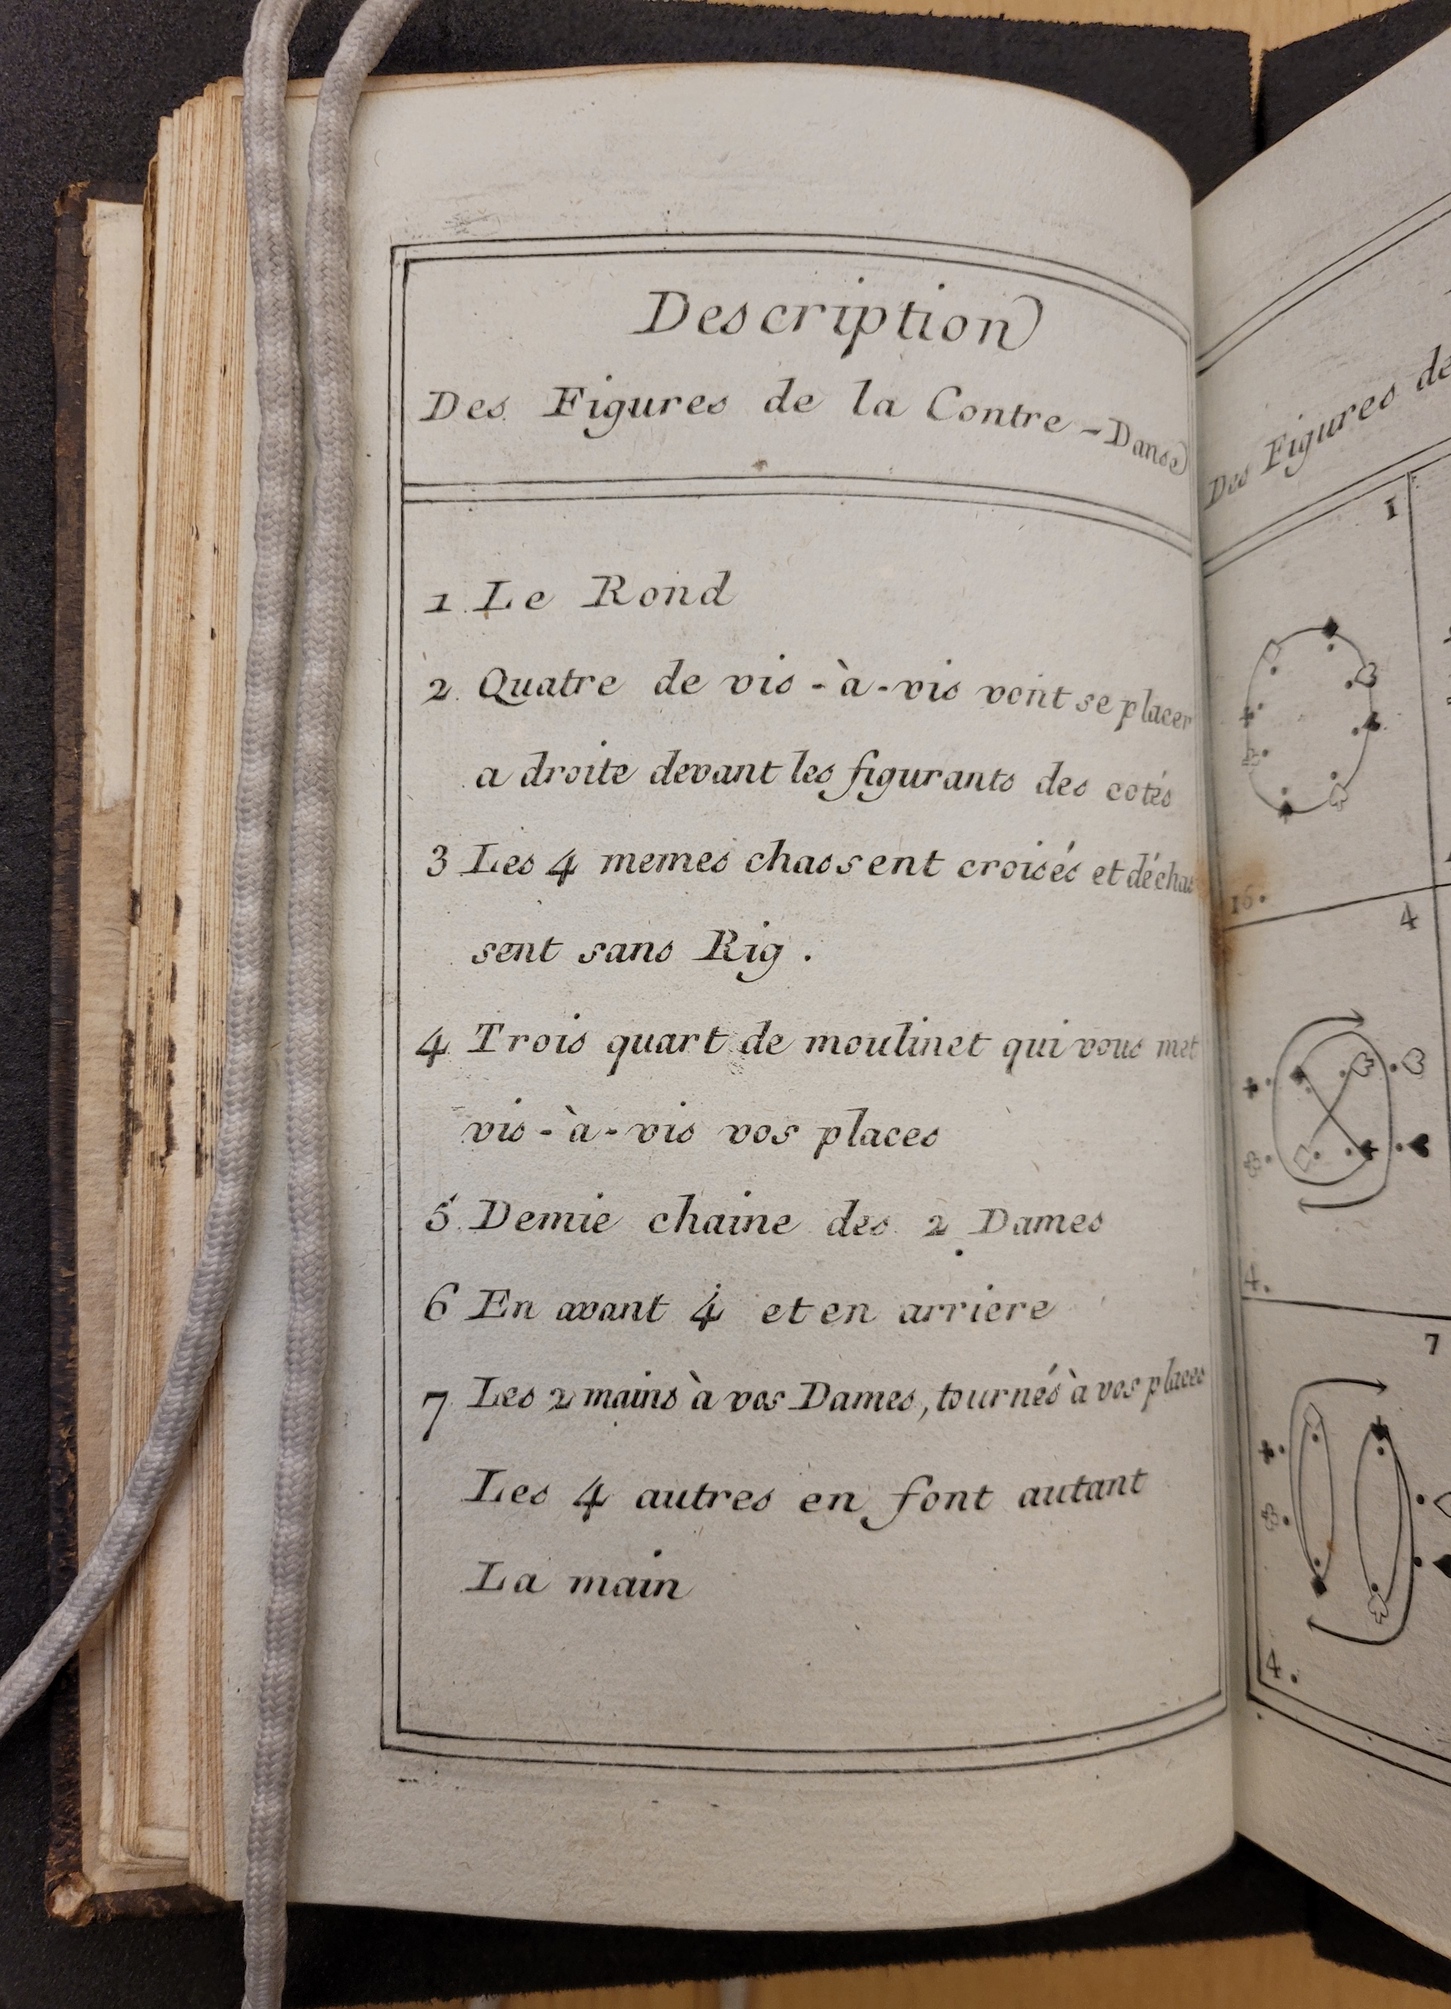 Description
Des Figures de la Contre-Danse
1. Le Rond
2. Quatre de vis-à-vis vont se placer
a droite devant les figurants des cotés
3 Les 4 memes chassent croisés et déchas
sent sans Rig.
4 Trois quart de moulinet qui vous met
vis-à-vis vos places
5. Demie chaine des 2 Dames
6 En avant 4 et en arriere
7 Les 2 mains à vos Dames, tournés à vos places
Les 4 autres en font autant
La main
Des Figures de
1
16.
4
4.
7
4.